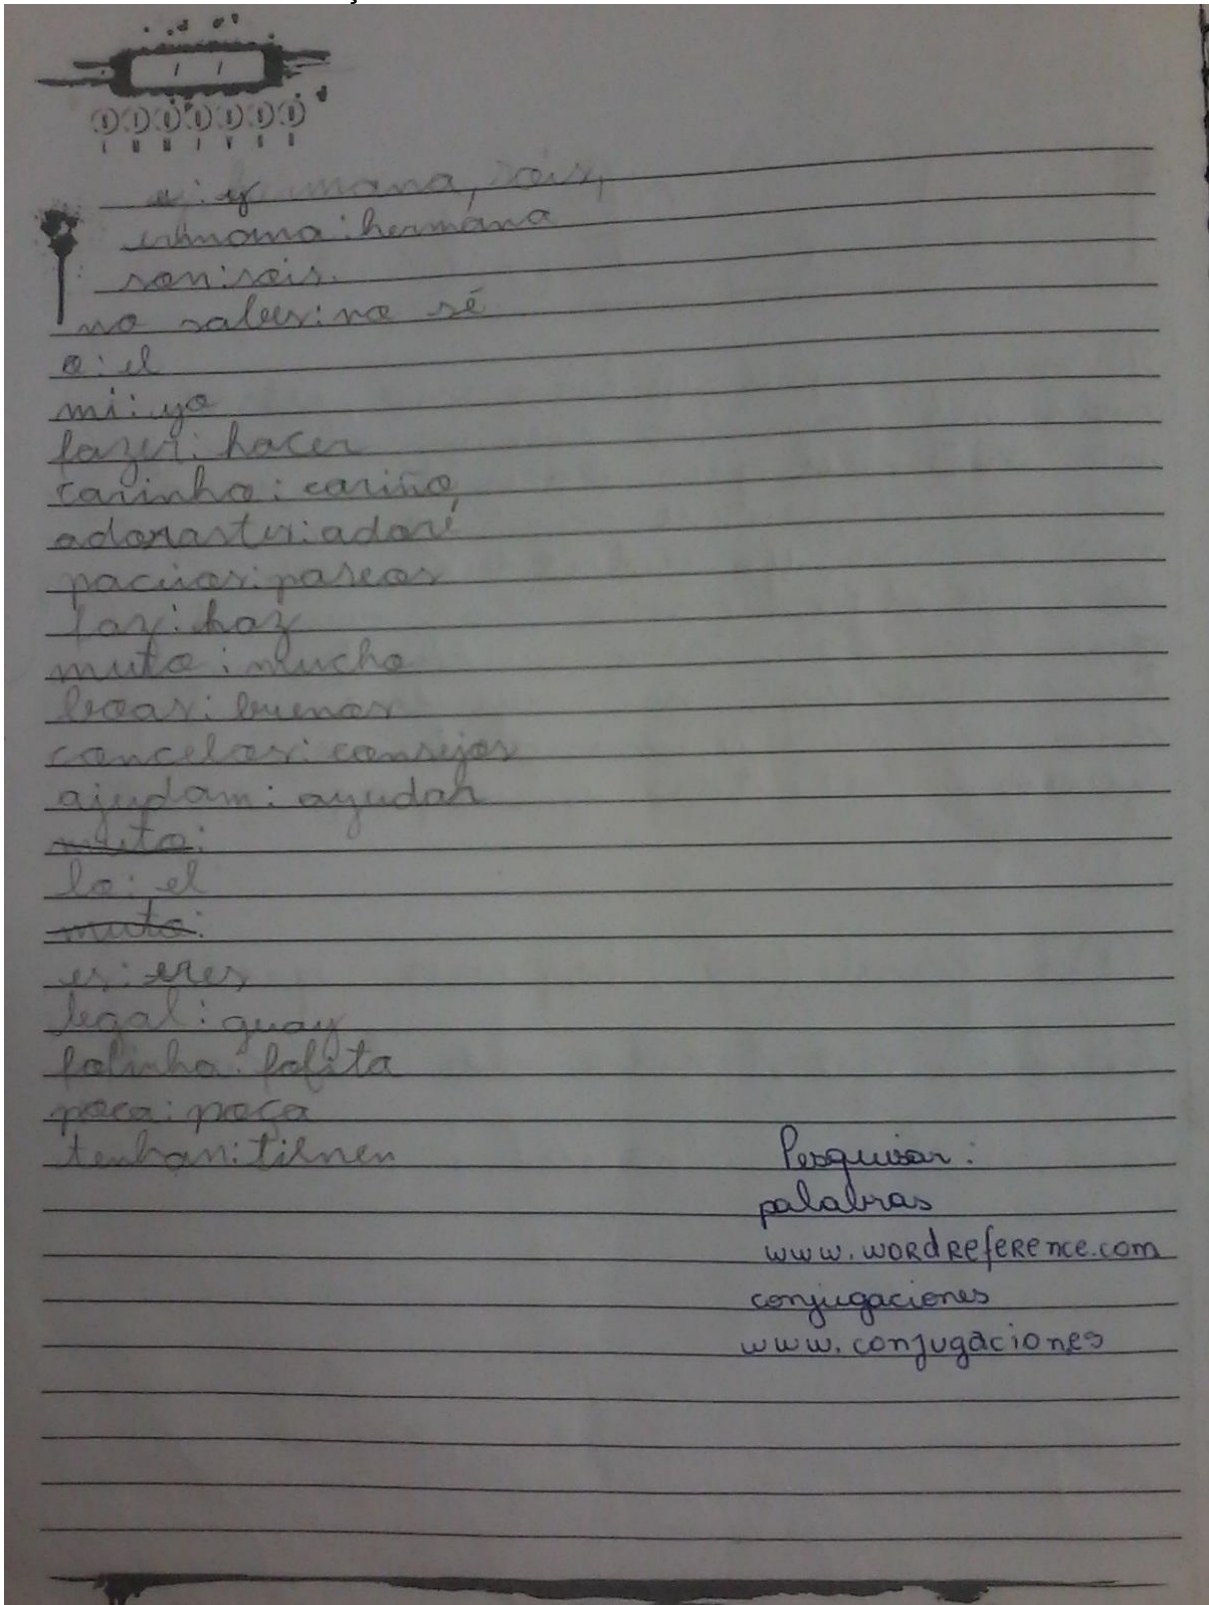 e: y mana, sois,
ermoma: hermána
son: sois.
no saber: no sé
o: el
mi: yo
fazer: hacer
carinho: cariño
adoraster: adoré
pacios: paseos
faz: haz
muto: mucho
boas: buenos
concelos: consejos
ajudam: ayudan
muto:
lo: el
muto:
es: eres
legal: guay
fofinha: fofita
poca: poça
tenhan: tienen
Pesquisar:
palabras
www.wordreference.com
conjugaciones
www.conjugaciones